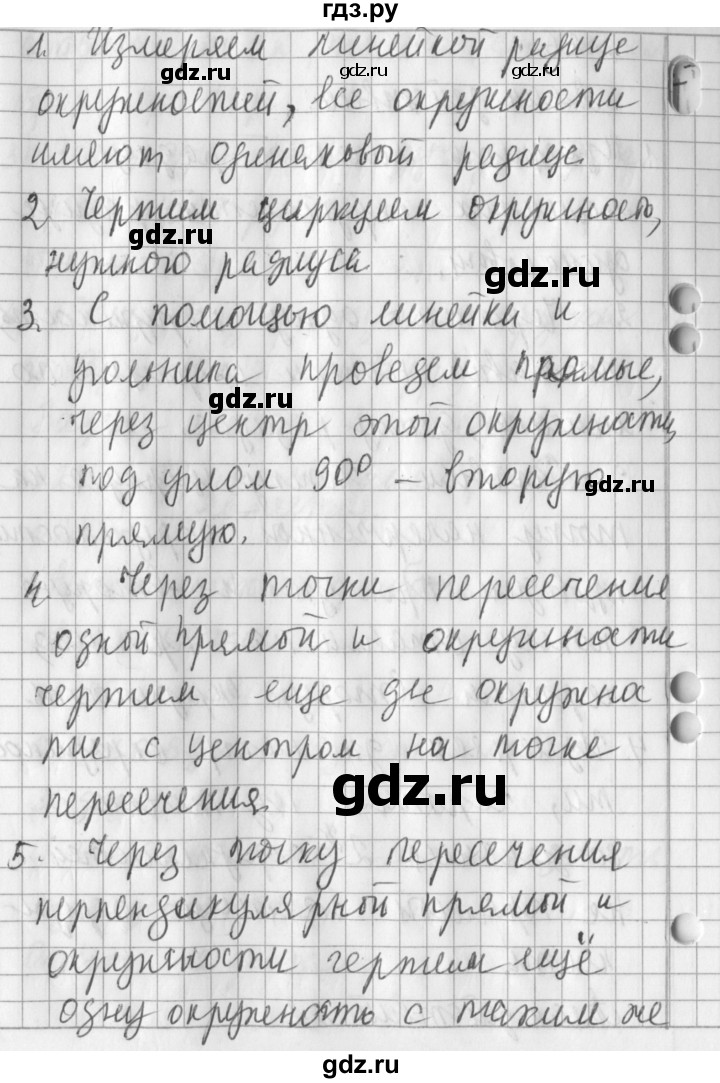 гдз.ру
1. Измеряем линейкой радиус
gdz.ru gdz.ru
окружностей, все окружности
имеют одинаковый радиус.
2 Чертим циркулем окружность,
gdz.ru
нужного радиуса
gdz.ru
3. С помощью линейки и
угольника проведем прямые,
gdz.ru
через центр этой окружности,
под углом 90° – вторую
gdz.ru
прямую.
4. Через точки пересечения
одной прямой и окружности
чертим еще две окружнос
ти с центром на точке
gdz.ru
пересечения.
5. Через точку пересечения
перпендикулярной прямой и
окружности чертим ещё
одну окружность с таким же
gdz.ru